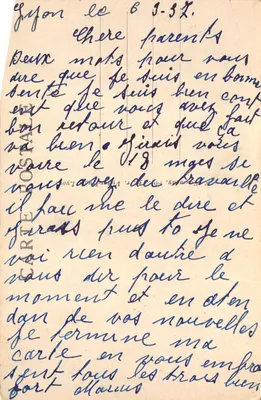 Lyon le 6 3-37.
Chere parents
Deux mots pour vous
dire que je suis en bonne
sente je suis bien cont
est que vous avez fait
bon retour et que sa
va bien. Girais vous
voire le 18 mges si
vous avez du travaille
il fau me le dire et
girass plus to je ne
voi rien dautre a
vous dir pour le
moment et en aten
dan de vos nouvelles
je termine ma
carte en vous embra
sent tous les trois bien
fort Marius
CARTE POSTALE